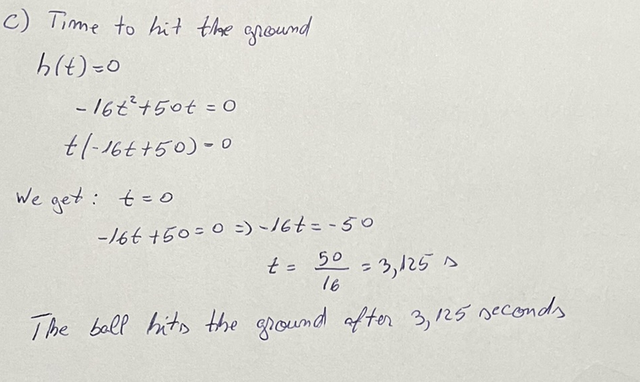 c) Time to hit the ground
h(t)=0
-16t²+50t=0
t(-16t+50)=0
We get: t=0
-16t+50=0 => -16t=-50
t = 50/16 = 3,125 s
The ball hits the ground after 3,125 seconds